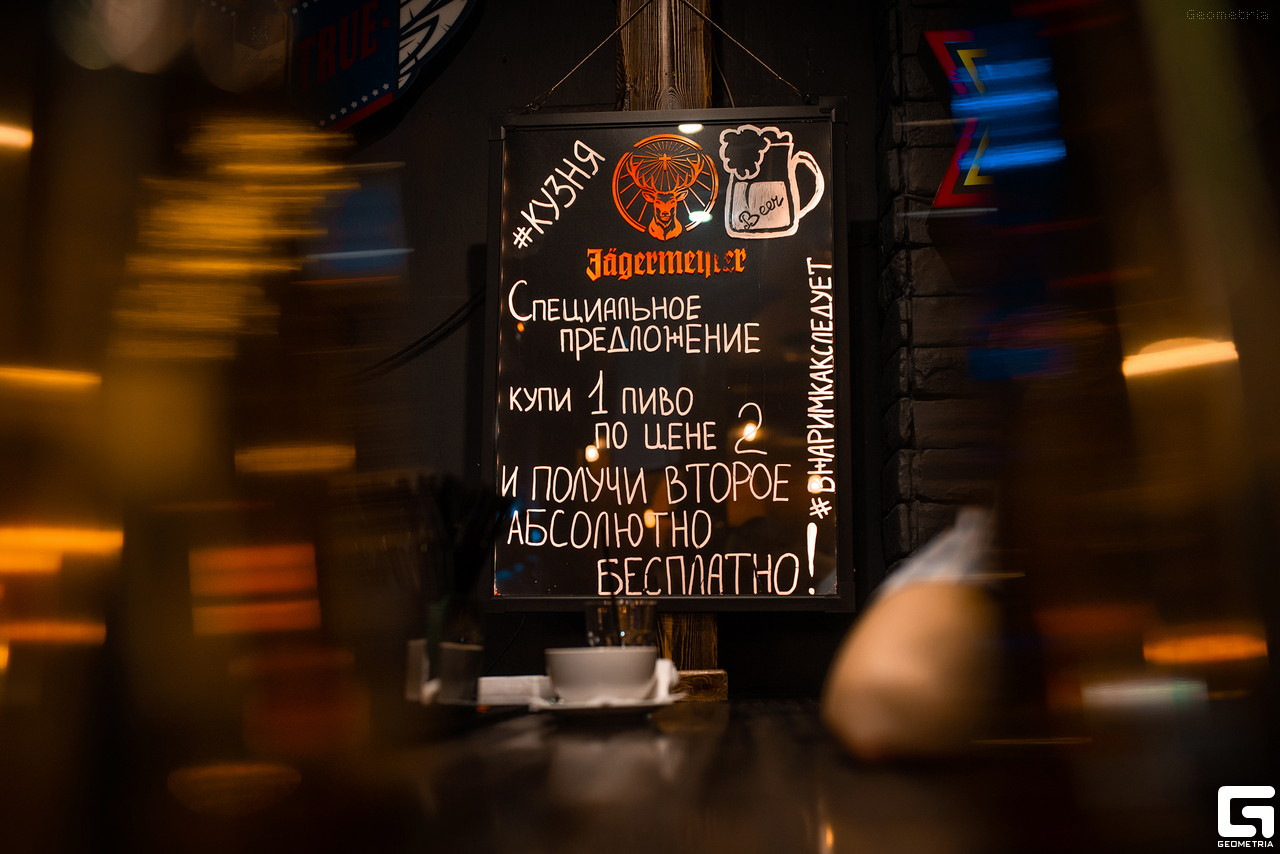 Geometria
TRUE
#КУЗНЯ
Beer
Jägermeister
СПЕЦИАЛЬНОЕ
ПРЕДЛОЖЕНИЕ
КУПИ 1 ПИВО
ПО ЦЕНЕ 2
И ПОЛУЧИ ВТОРОЕ
АБСОЛЮТНО
БЕСПЛАТНО!
#ВЖАРИМКАКСЛЕДУЕТ
GEOMETRIA